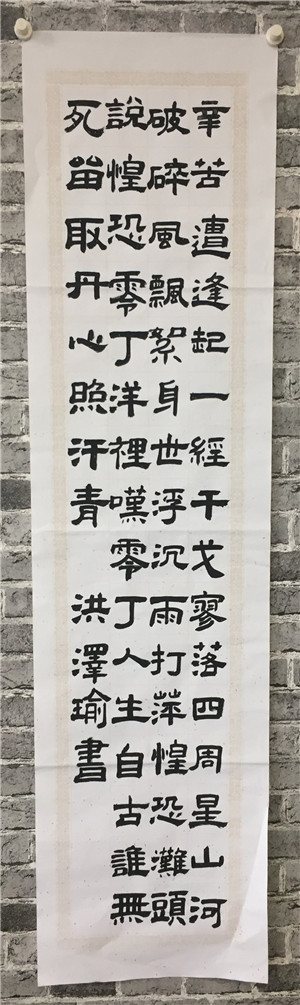 辛苦遭逢起一經干戈寥落四周星山河
破碎風飄絮身世浮沉雨打萍惶恐灘頭
說惶恐零丁洋裡嘆零丁人生自古誰無
死留取丹心照汗青 洪澤瑜書